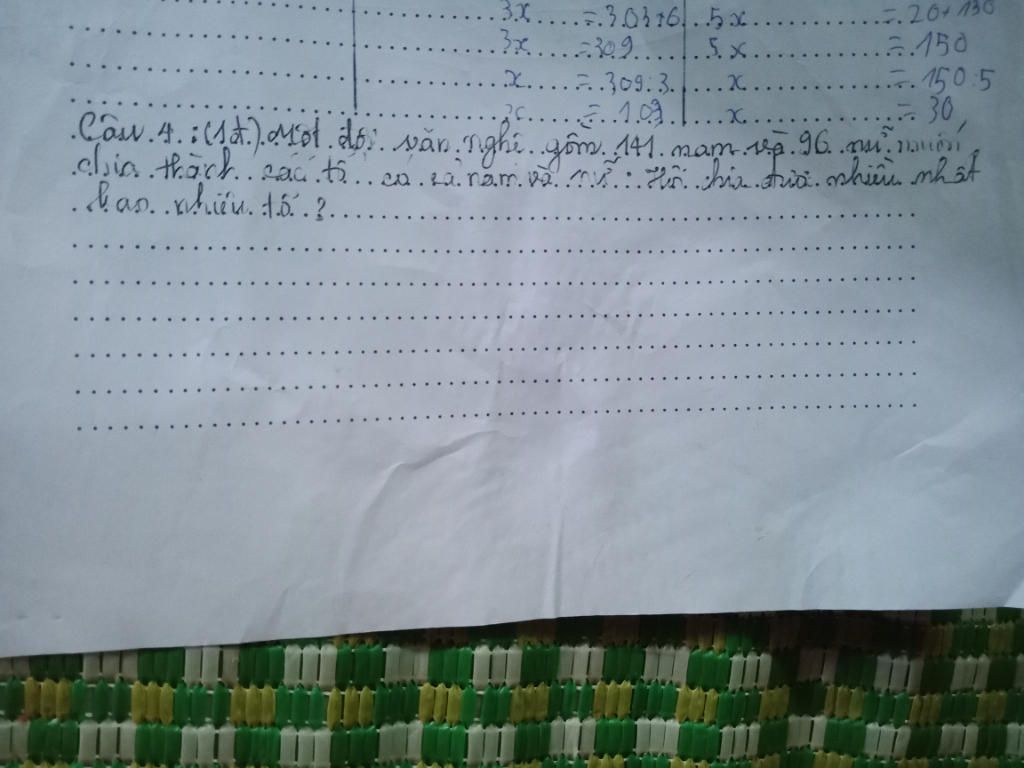 3x = 303+6 5x = 20+130
3x = 309 5x = 150
x = 309:3 x = 150:5
x = 109 x = 30
Câu 4: (1đ) Một đội văn nghệ gồm 141 nam và 96 nữ muốn
chia thành các tổ có cả nam và nữ: Hỏi chia được nhiều nhất
bao nhiêu tổ?